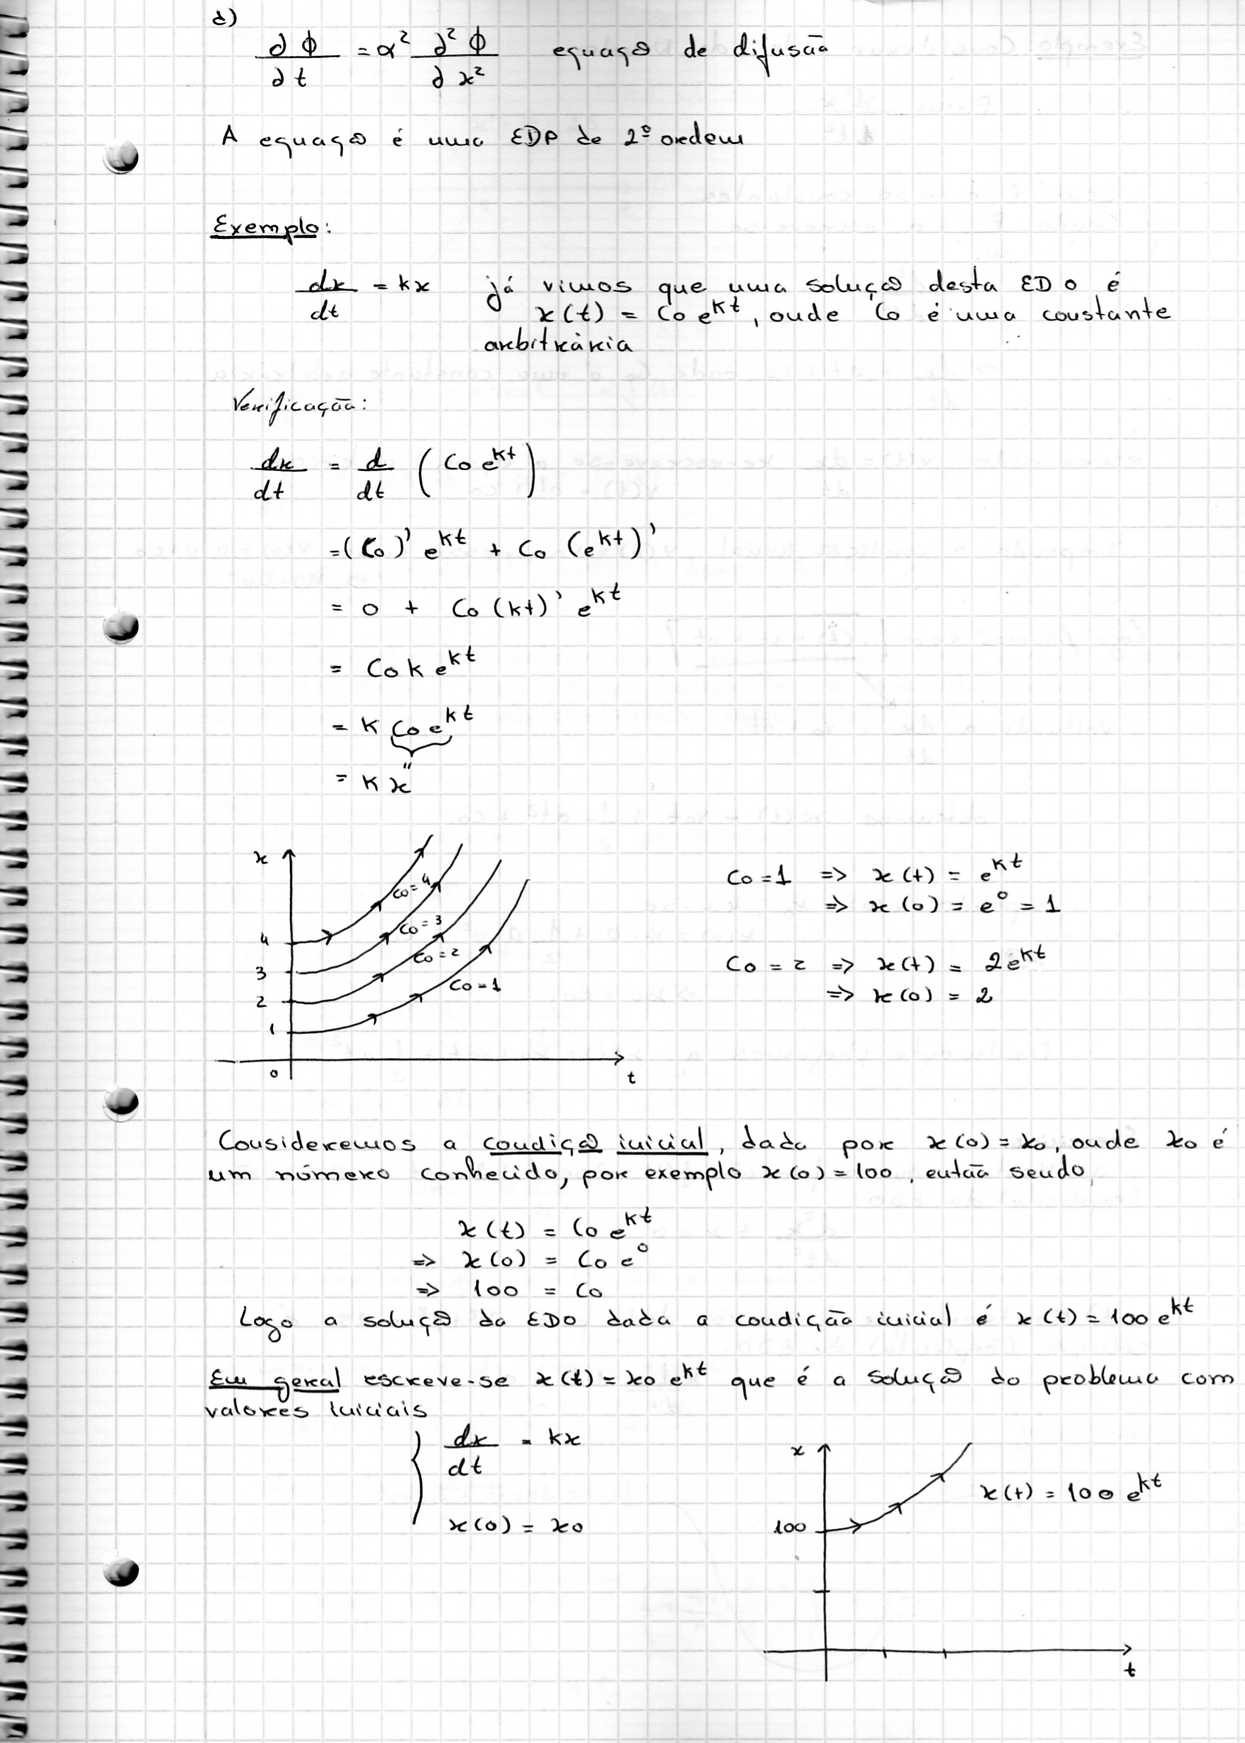 d)
∂Φ/∂t = α² ∂²Φ/∂x² equação de difusão
A equação é uma EDP de 2º ordem
Exemplo:
dx/dt = kx já vimos que uma solução desta EDO é
x(t) = C₀ e^kt, onde C₀ é uma constante
arbitrária
Verificação:
dx/dt = d/dt (C₀ e^kt)
= (C₀)' e^kt + C₀ (e^kt)'
= 0 + C₀ (kt)' e^kt
= C₀ k e^kt
= k C₀ e^kt
= k x
x
C₀=4
C₀=3
C₀=2
C₀=1
4
3
2
1
0
t
C₀=1 => x(t) = e^kt
=> x(0) = e⁰ = 1
C₀ = 2 => x(t) = 2e^kt
=> x(0) = 2
Consideremos a condição inicial, dada por x(0)=x₀, onde x₀ é
um número conhecido, por exemplo x(0)=100, então sendo,
x(t) = C₀ e^kt
=> x(0) = C₀ e⁰
=> 100 = C₀
Logo a solução da EDO dada a condição inicial é x(t)=100 e^kt
Em geral escreve-se x(t)=x₀ e^kt que é a solução do problema com
valores iniciais
{ dx/dt = kx
x(0) = x₀
x
x(t) = 100 e^kt
100
t